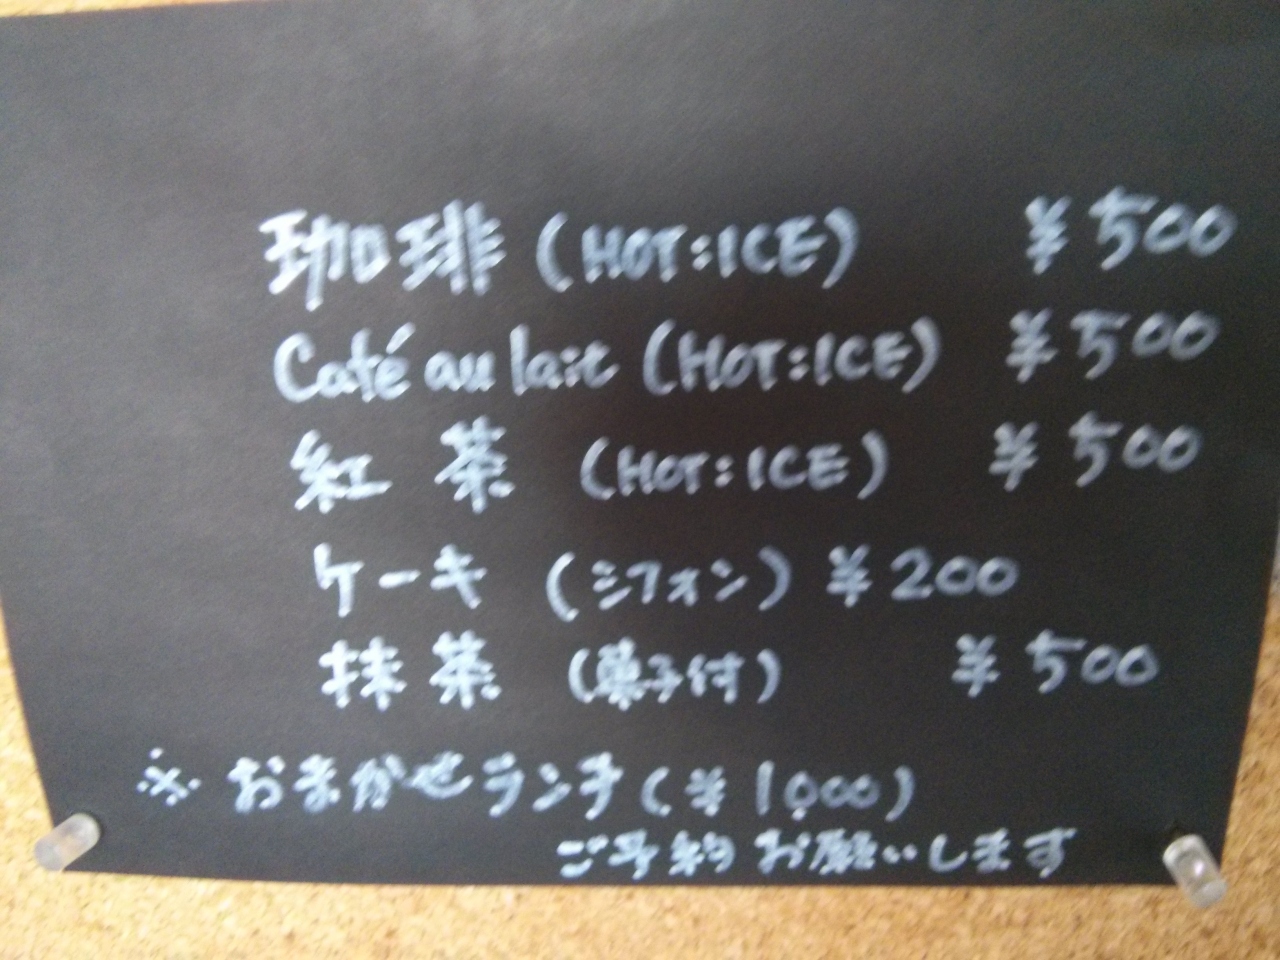 珈琲 (HOT:ICE) ¥500
Café au lait (HOT:ICE) ¥500
紅茶 (HOT:ICE) ¥500
ケーキ (シフォン) ¥200
抹茶 (菓子付) ¥500
※ おまかせランチ (¥1,000)
ご予約お願いします